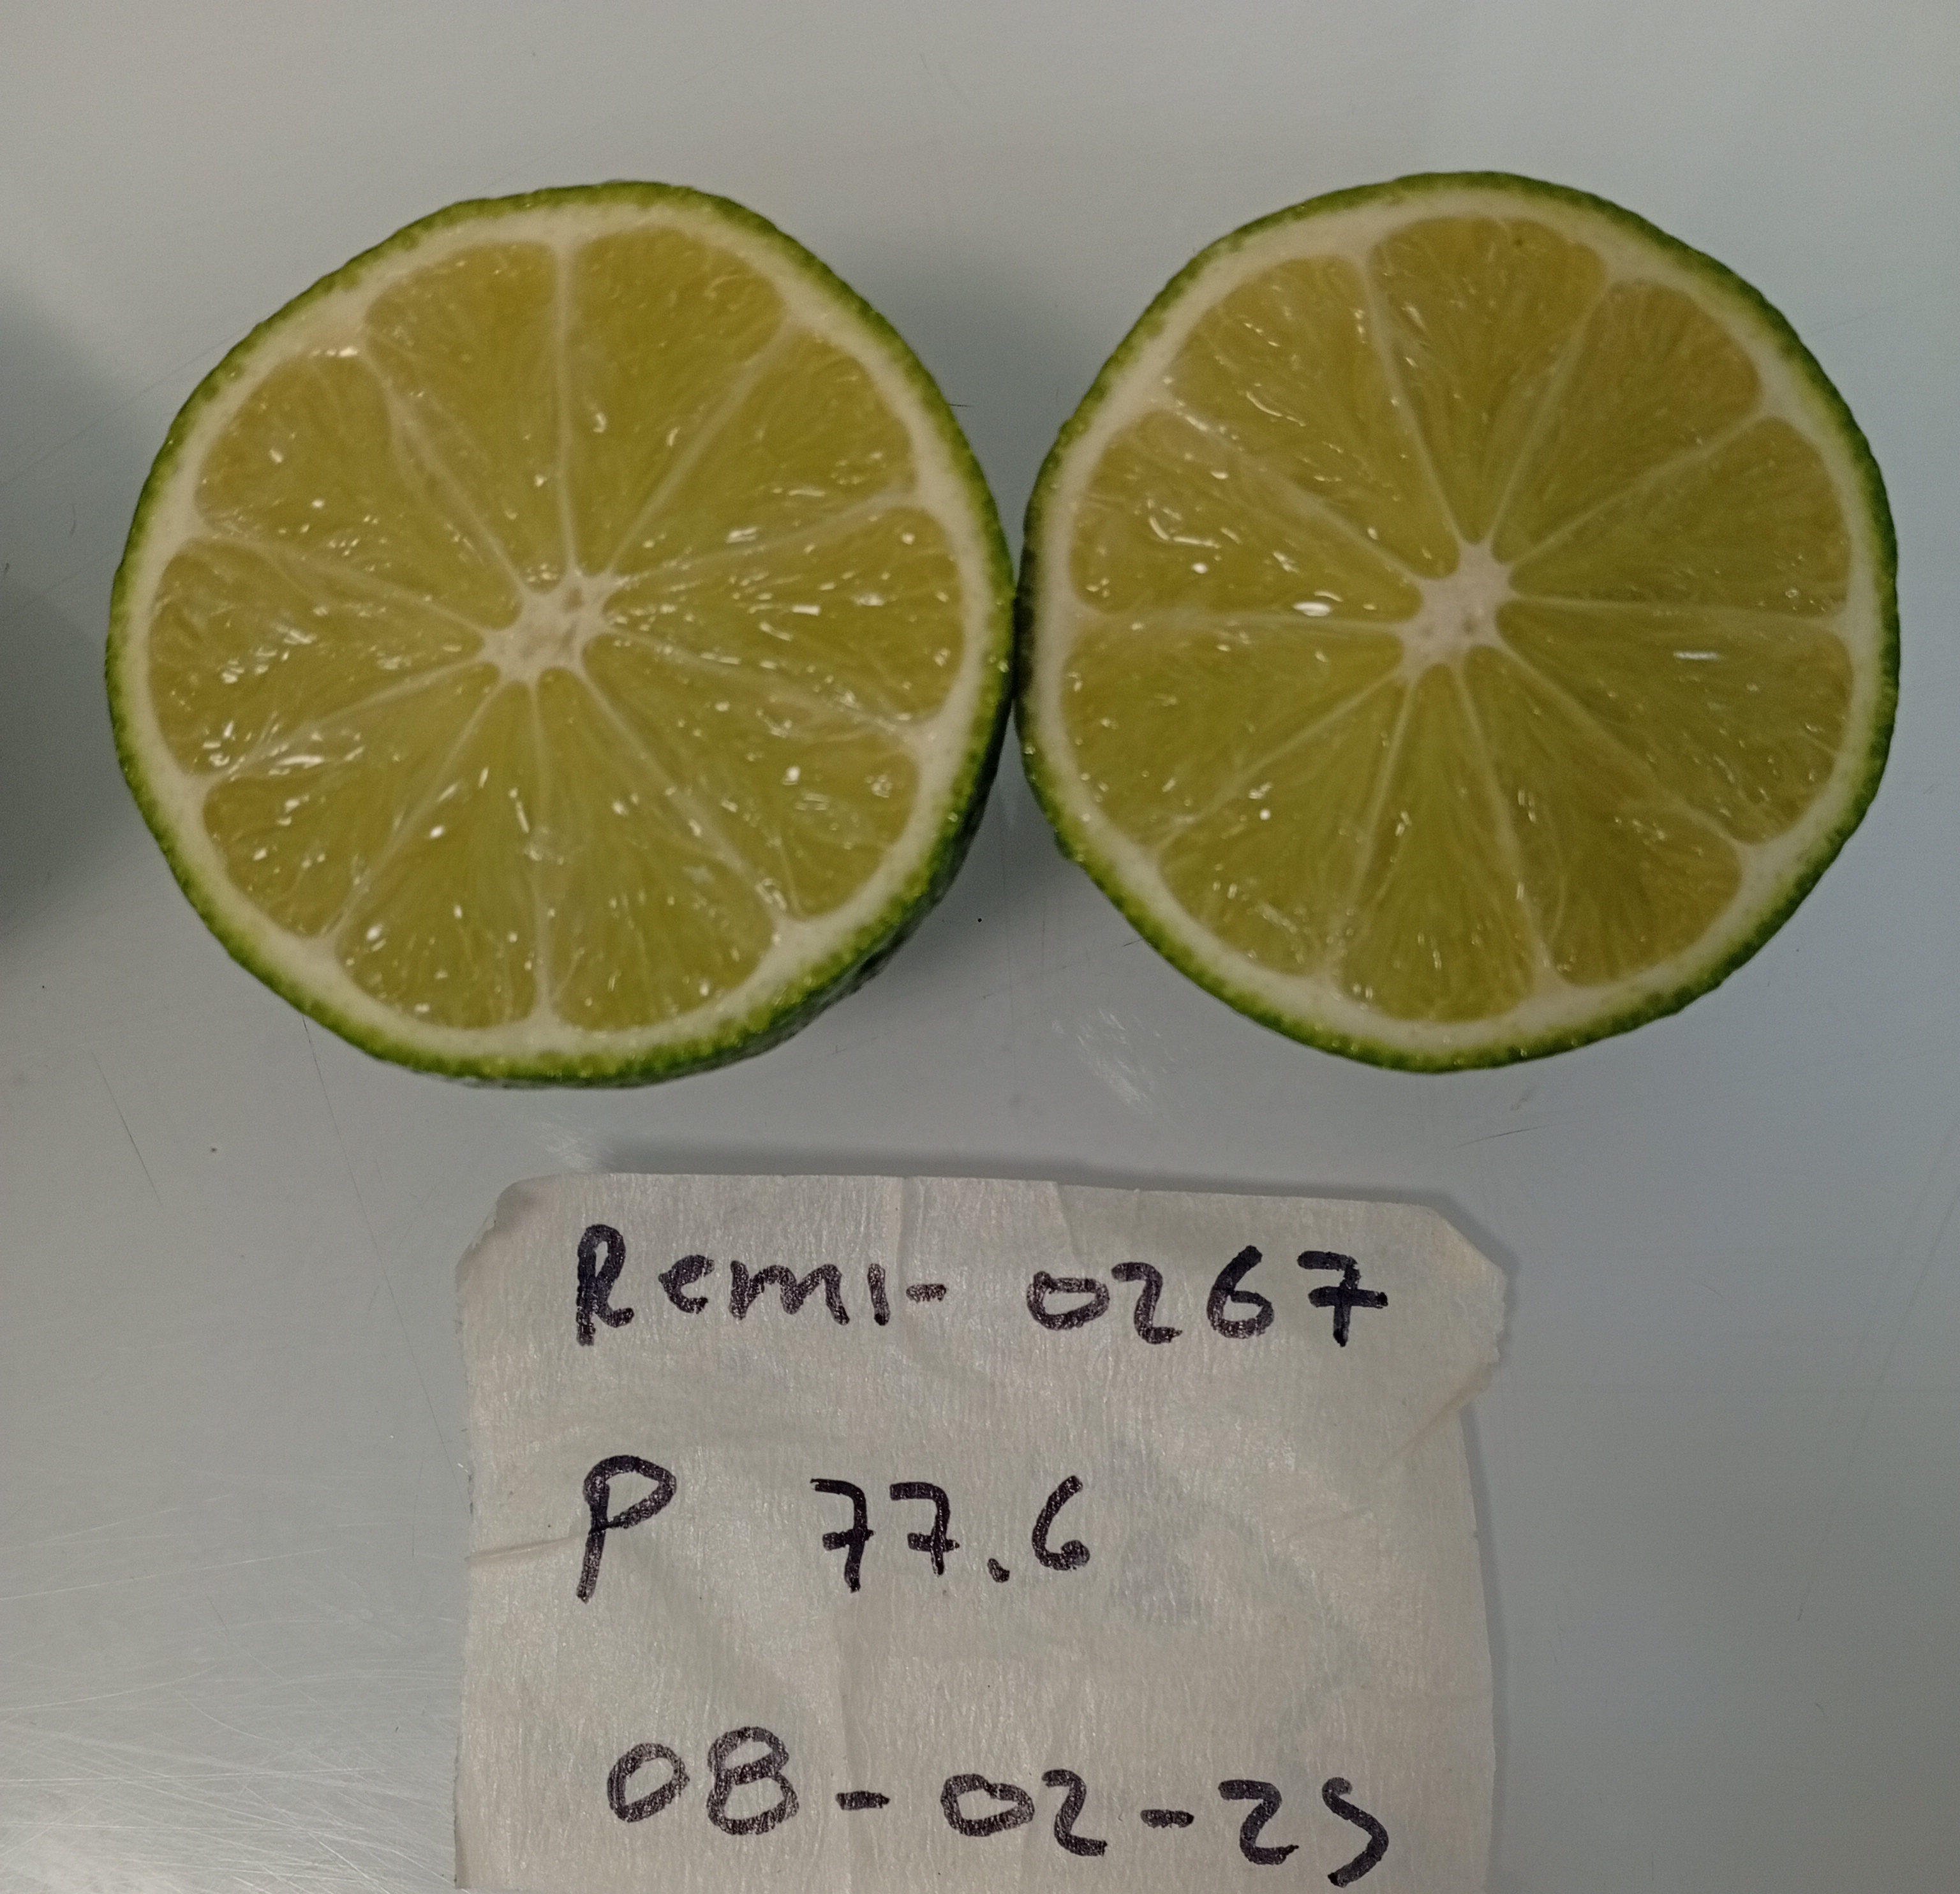 Remi- 0267
P 77.6
08-02-25